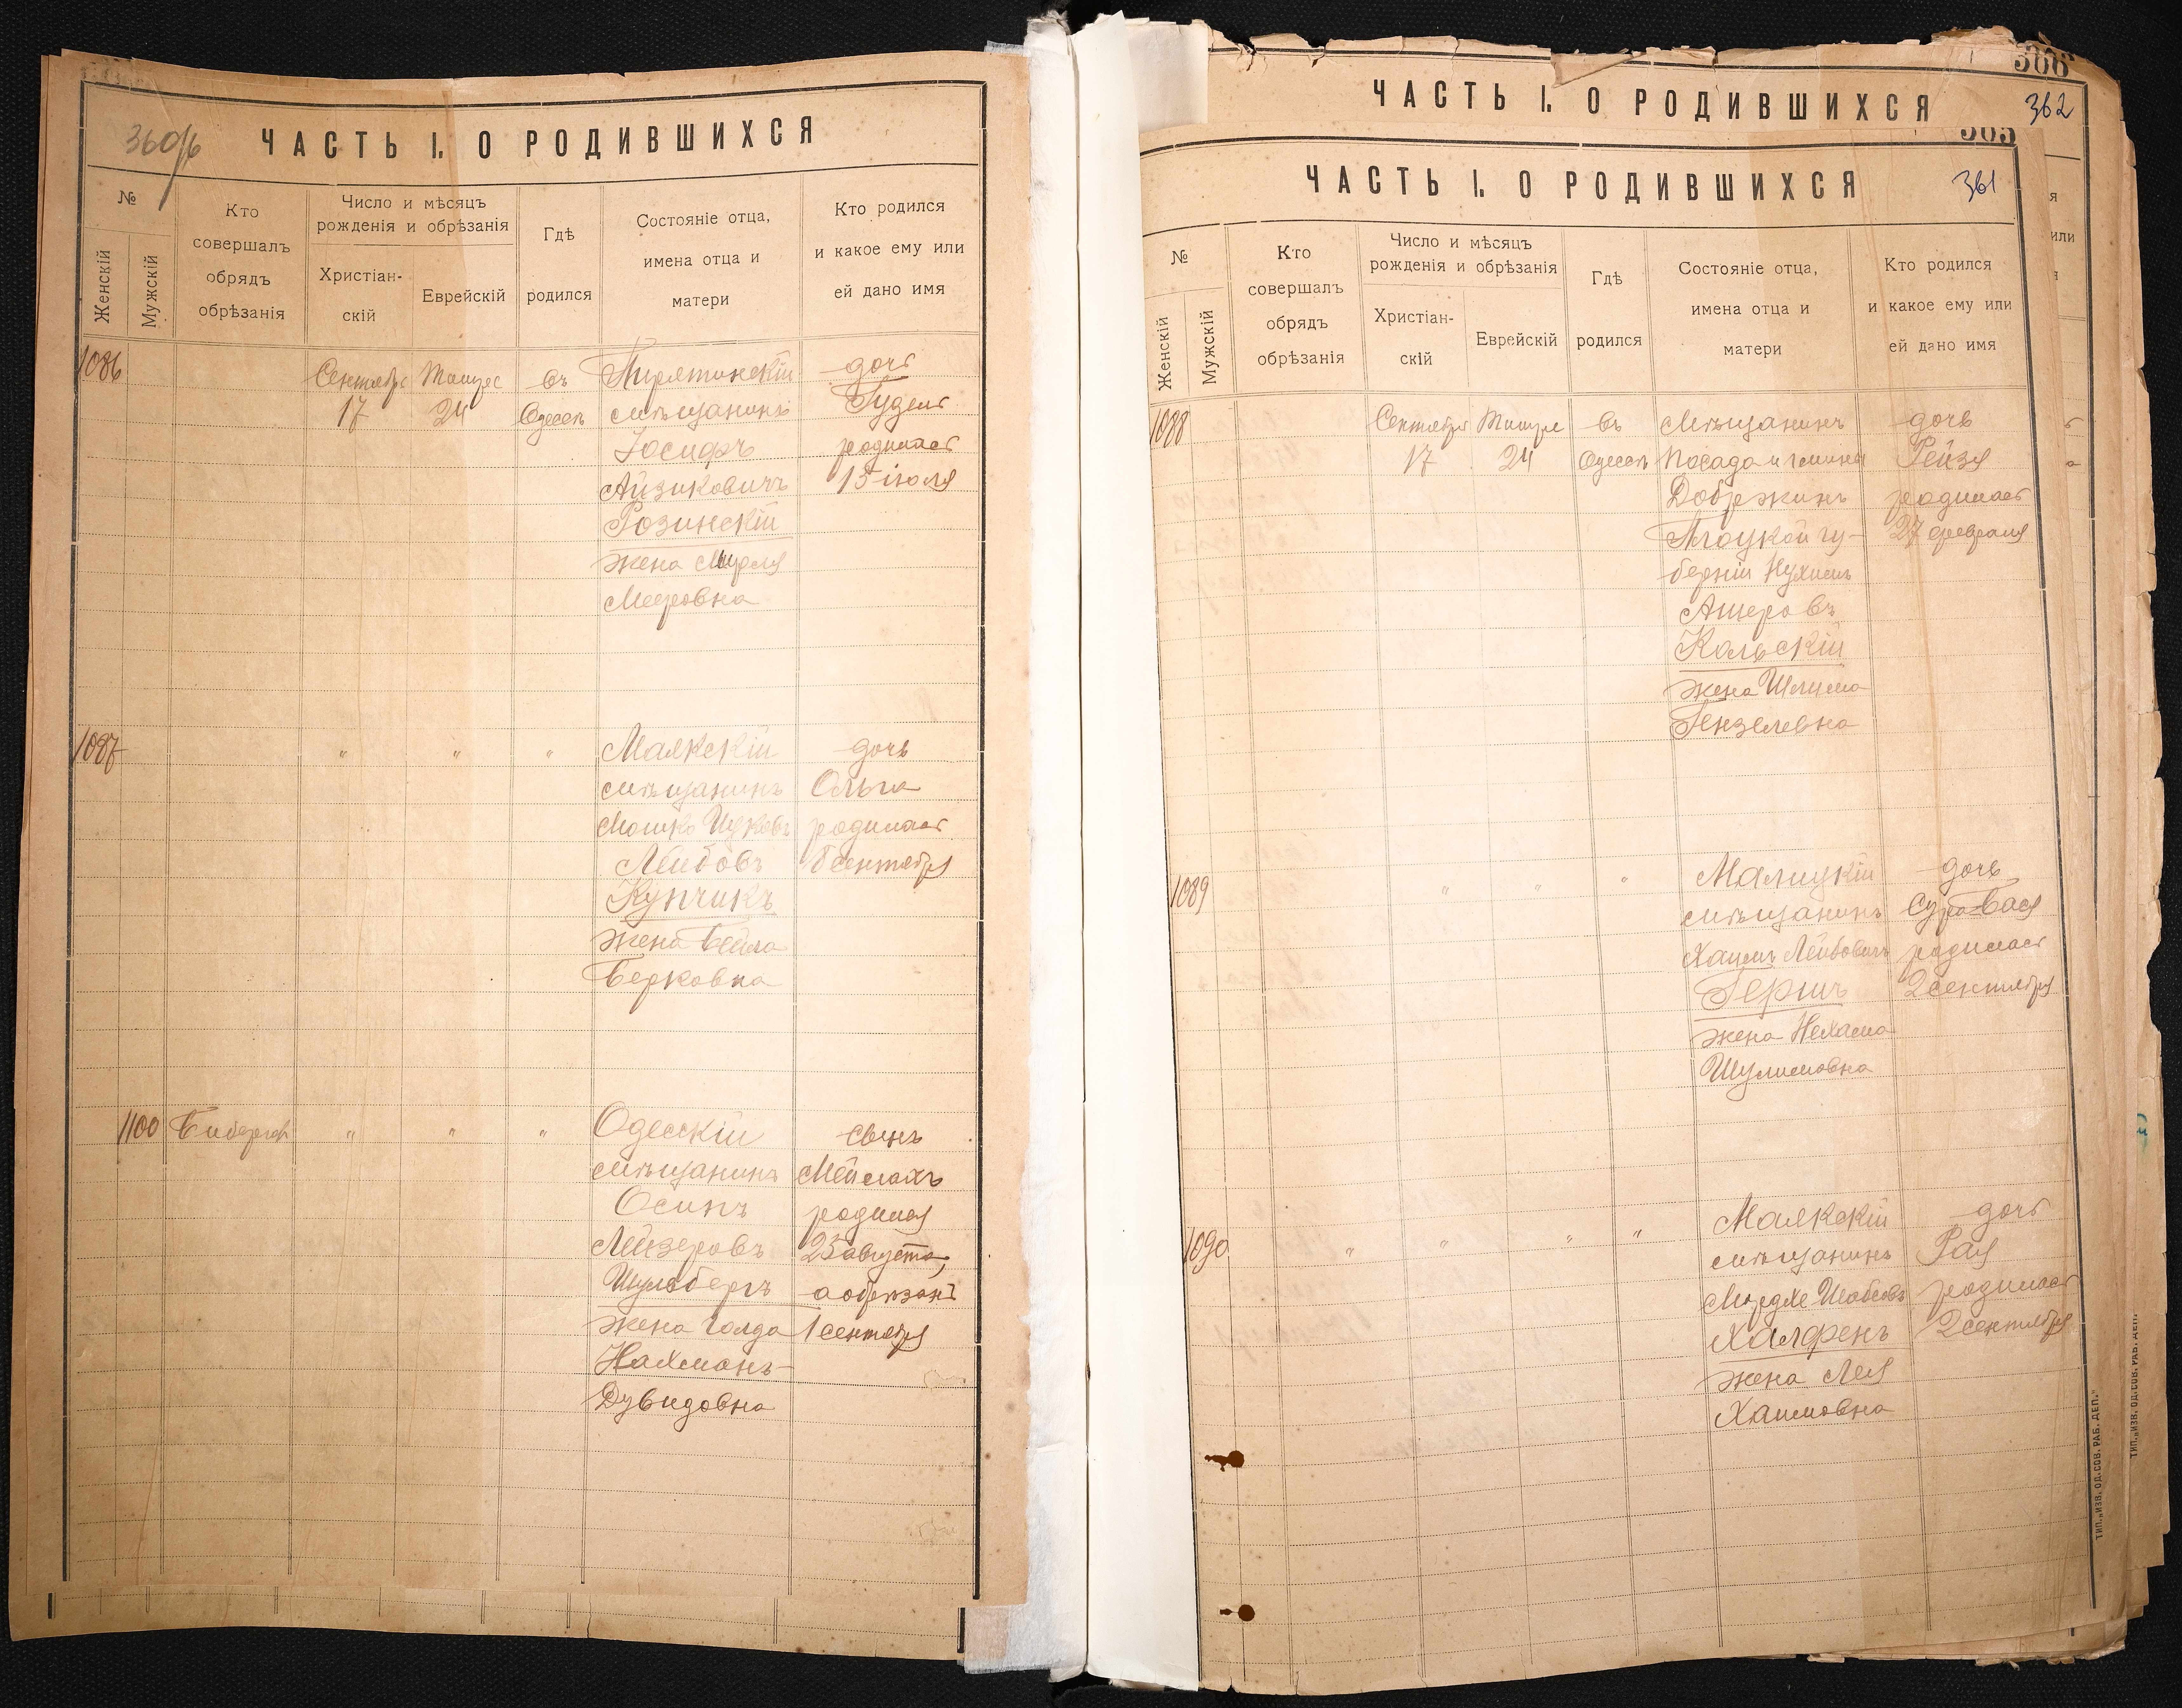 360об
ЧАСТЬ I. О РОДИВШИХСЯ
№
Женскій
Мужскій
Кто
совершалъ
обрядъ
обрѣзанія
Число и мѣсяцъ
рожденія и обрѣзанія
Христіан-
скій
Еврейскій
Гдѣ
родился
Состояніе отца,
имена отца и
матери
Кто родился
и какое ему или
ей дано имя
1086
Сентябрь
17
Тишрес
24
въ
Одессѣ
Пирятинскій
мѣщанинъ
Іосифъ
Айзиковичъ
Розинскій
жена Мирля
Мееровна
дочь
родилась
15 іюля
1087
"
"
"
Маякскій
мѣщанинъ
Мошко Ицковъ
Лейбовъ
Купчикъ
жена Бейла
Берковна
дочь
Ольга
родилась
8 сентября
1100
"
"
"
Одесскій
мѣщанинъ
Осипъ
Лейзеровъ
Шульбергъ
жена Голда
Нахманъ-
Дувидовна
сынъ
Меймахъ
родился
25 августа,
а обрѣзанъ
1 сентября
306
ЧАСТЬ I. О РОДИВШИХСЯ
362
305
ЧАСТЬ I. О РОДИВШИХСЯ
361
№
Женскій
Мужскій
Кто
совершалъ
обрядъ
обрѣзанія
Число и мѣсяцъ
рожденія и обрѣзанія
Христіан-
скій
Еврейскій
Гдѣ
родился
Состояніе отца,
имена отца и
матери
Кто родился
и какое ему или
ей дано имя
1088
Сентября
17
Тишре
24
въ
Одессѣ
Мѣщанинъ
посада и гмины
Добржинъ
Плоцкой гу-
берніи Нухимъ
Ашеровъ
Кольскій
жена
Гензелевна
дочь
Рейзя
родилась
27 февраля
1089
"
"
"
Малицкій
мѣщанинъ
Хаимъ Лейбовичъ
Гершъ
жена Нехама
Шулимовна
дочь
Сура-Бася
родилась
2 сентября
1090
"
"
"
"
Маякскій
мѣщанинъ
Мордхе
Халфенъ
жена Лея
Хаимовна
дочь
Рая
родилась
2 сентября
ТИП. „ИЗВ. ОД. СОВ. РАБ. ДЕП."
ТИП. „ИЗВ. ОД. СОВ. РАБ. ДЕП."